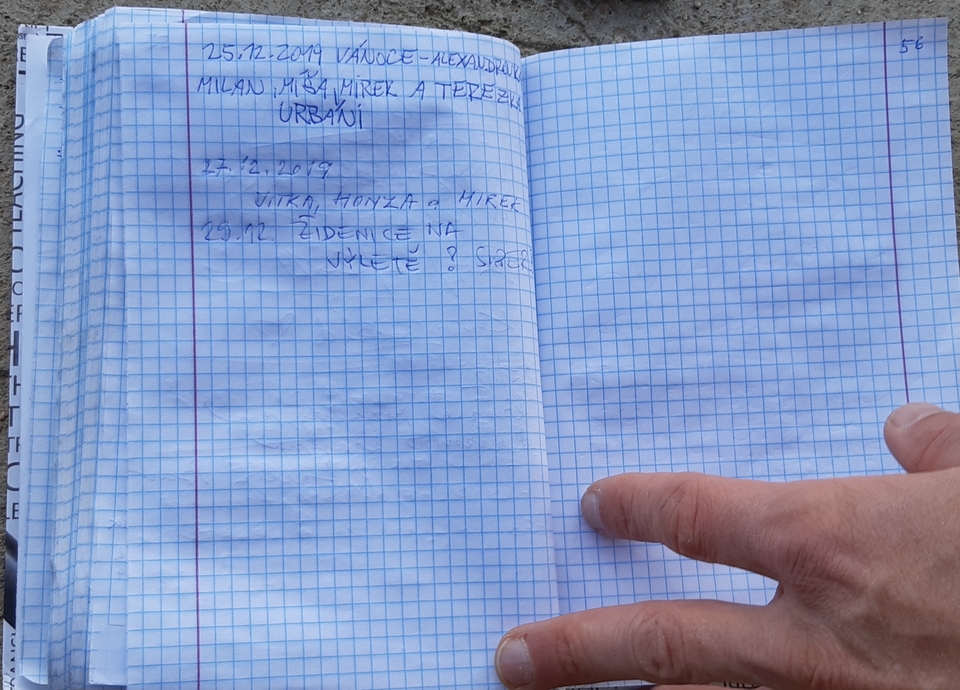 25.12.2019 VÁNOCE - ALEXANDRINKA
MILAN, MÍŠA, MIREK A TEREZKA
URBÁNI
27.12.2019
JITKA, HONZA a MIREK
29.12. ŽIDENICE NA
VÝLETĚ ?
56